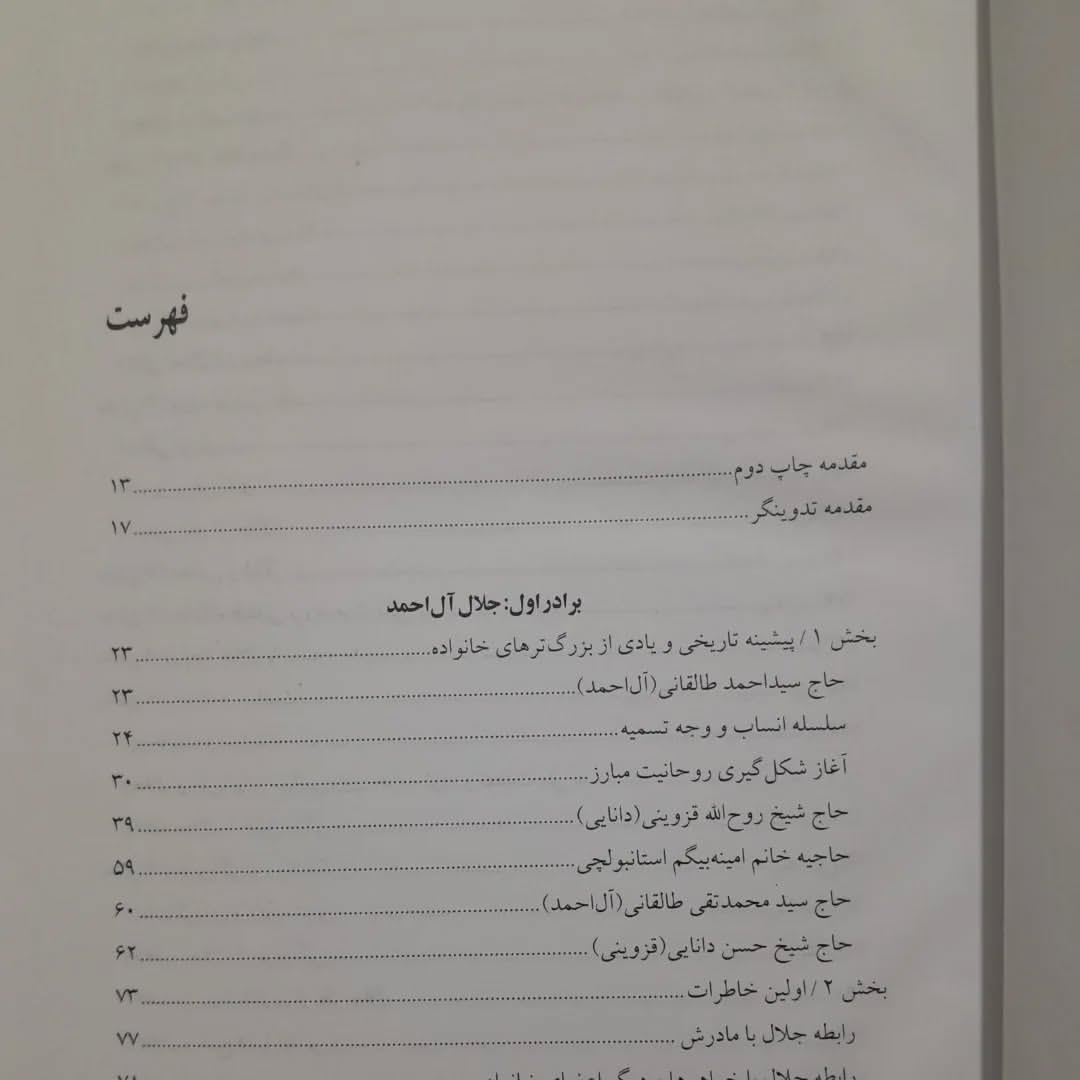 فهرست
مقدمه چاپ دوم........................۱۳
مقدمه تدوینگر........................۱۷
برادر اول: جلال آل‌احمد
بخش ۱ / پیشینه تاریخی و یادی از بزرگ‌ترهای خانواده........................۲۳
حاج سیداحمد طالقانی(آل‌احمد)........................۲۳
سلسله انساب و وجه تسمیه........................۲۴
آغاز شکل‌گیری روحانیت مبارز........................۳۰
حاج شیخ روح‌الله قزوینی(دانایی)........................۳۹
حاجیه خانم امینه‌بیگم استانبولچی........................۵۹
حاج سید محمدتقی طالقانی(آل‌احمد)........................۶۰
حاج شیخ حسن دانایی(قزوینی)........................۶۲
بخش ۲ / اولین خاطرات........................۷۳
رابطه جلال با مادرش........................۷۷
رابطه جلال با